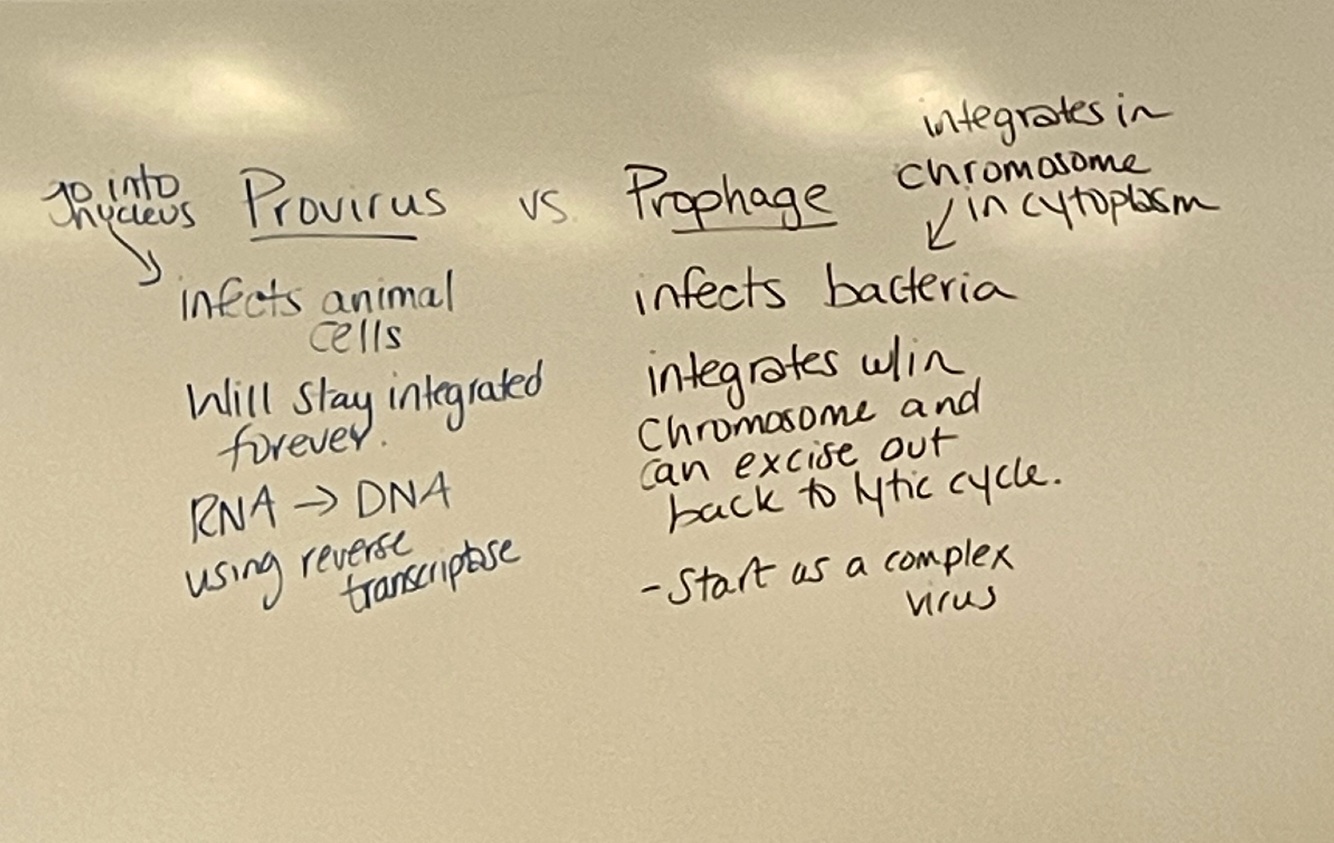 go into
nucleus
Provirus vs. Prophage
integrates in
chromosome
in cytoplasm
infects animal
cells
Will stay integrated
forever.
RNA → DNA
using reverse
transcriptase
infects bacteria
integrates w/in
Chromosome and
can excise out
back to lytic cycle.
- Start as a complex
virus